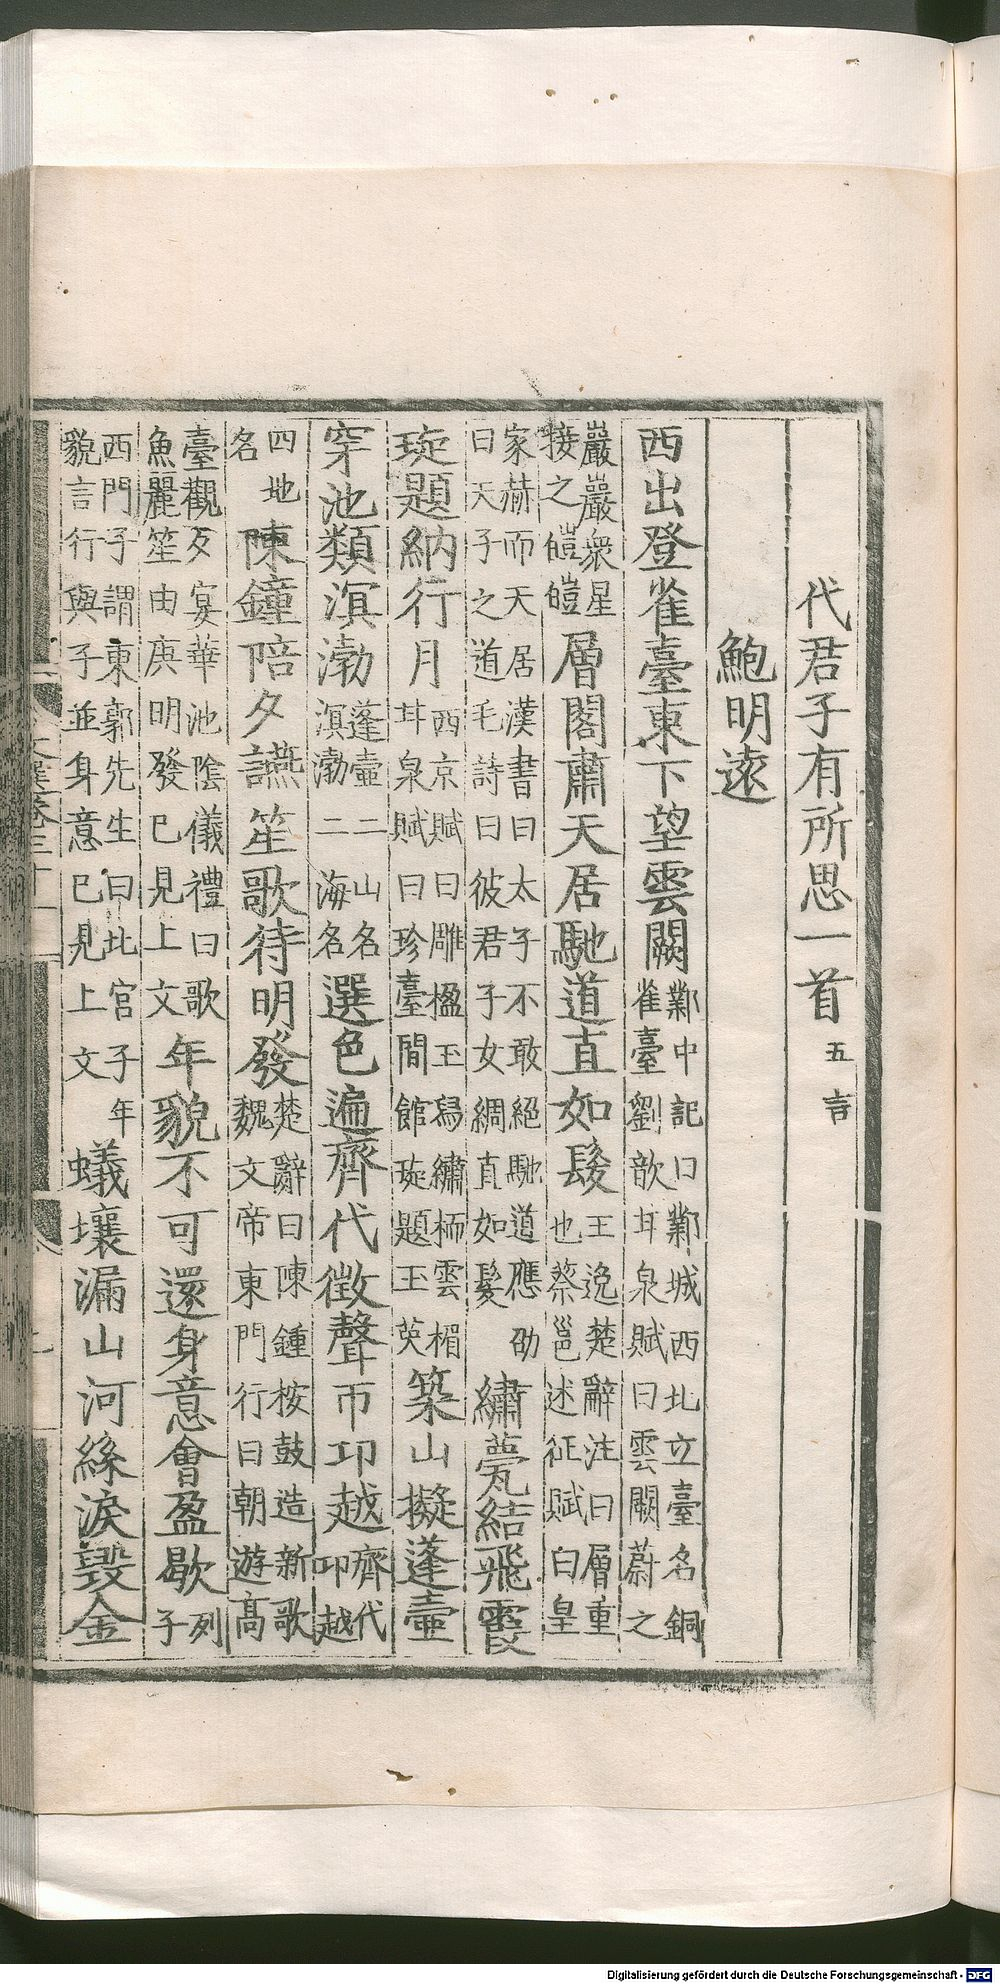 代君子有所思一首 五言
鮑明遠
西出登雀臺東下望雲闕
鄴中記曰鄴城西北立臺名銅
雀臺劉歆甘泉賦曰雲闕蔚之
巖巖衆星
接之皚皚
層閣肅天居馳道直如髮
王逸楚辭注曰層重
也蔡邕述征賦曰皇
家赫而天居漢書曰太子不敢絕馳道應劭
曰天子之道毛詩曰彼君子女綢直如髮
繡甍結飛霞
琁題納行月
西京賦曰雕楹玉舄繡栭雲楣
甘泉賦曰珍臺閒館琁題玉英
築山擬蓬壺
穿池類溟渤
蓬壺二山名
溟渤二海名
選色遍齊代徵聲帀卭越
齊代
卭越
四地
名
陳鐘陪夕讌笙歌待明發
楚辭曰陳鍾桉鼓造新歌
魏文帝東門行曰朝遊高
臺觀夕宴華池陰儀禮曰歌
魚麗笙由庚明發已見上文
年貌不可還身意會盈歇
列
子
西門子謂東郭先生曰北宮子年
貌言行與子並身意已見上文
蟻壤漏山河絲淚毀金
文選卷三十一
Digitalisierung gefördert durch die Deutsche Forschungsgemeinschaft - DFG